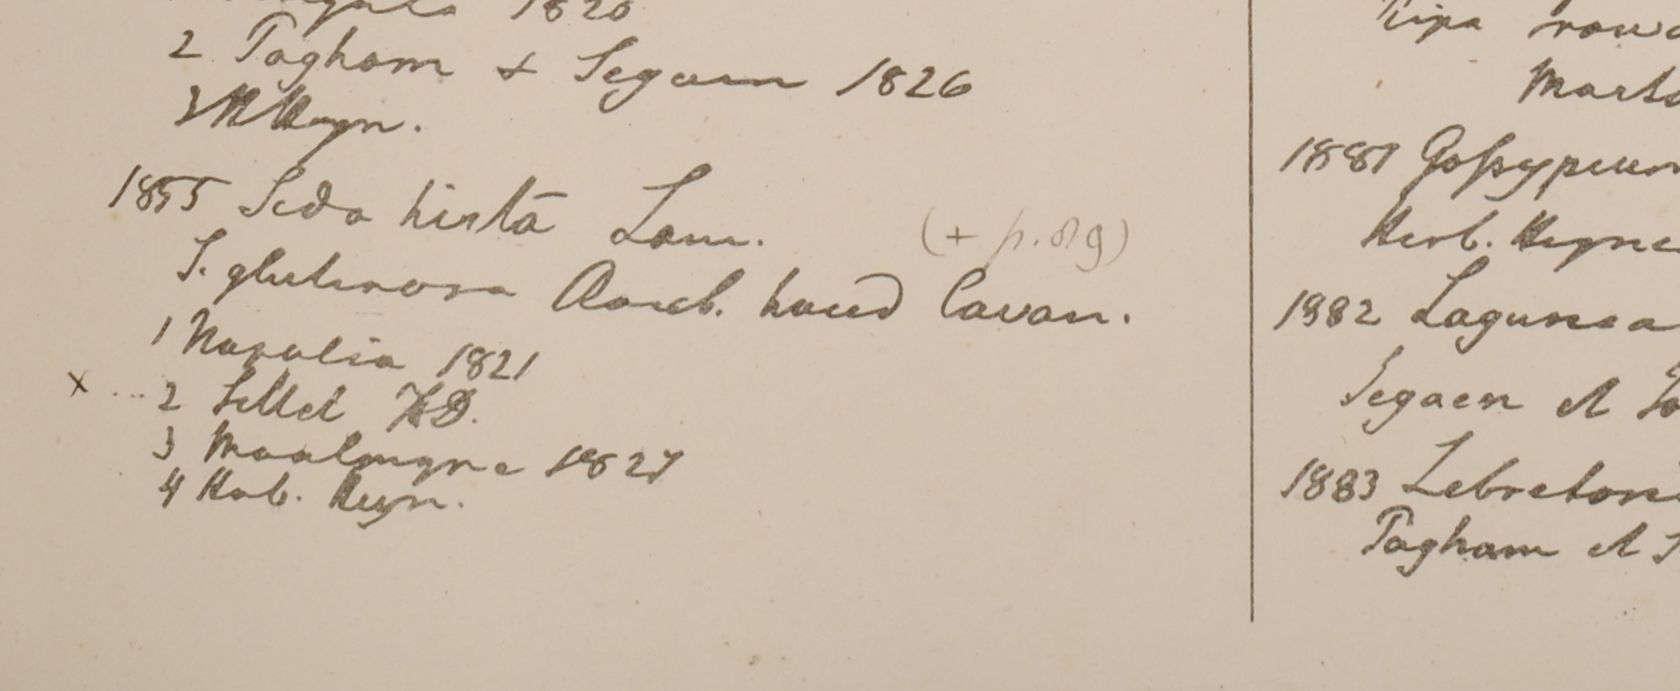 1820
2 Togham & Segaen 1826
3 H Heyn.
1855 Sida hirta Lam.
(+ p. 89)
S. glutinosa Roxb. haud Cavan.
1 Napalia 1821
x ... 2 Sillet HD.
3 Moalmyne 1827
4 Herb. Heyn.
Ripa
Mart
1881 Gossypium
Herb. Heyne
1882 Lagunea
Segaen et
1883 Lebretoni
Togham et S